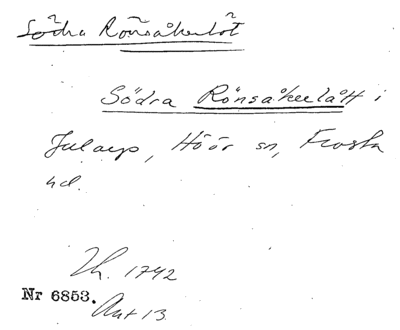 Södra Rönsåkerlöt
Södra Rönsåkerlått i
Jularp, Höör sn, Frosta
hd.
Lh. 1742
Nr 6853.
Akt 13